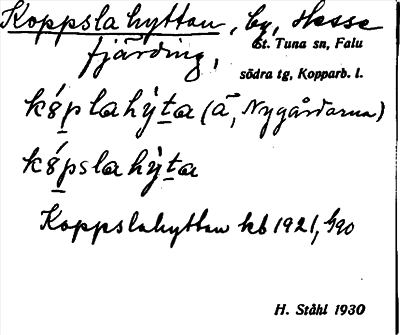 Koppslahyttan, by, Hesse
fjärding,
St. Tuna sn, Falu
södra tg, Kopparb. l.
kǿplahy̆ta (ā, Nygårdarna)
kǿpslahy̆ta
Koppslahyttan kb 1921, 
H. Ståhl 1930